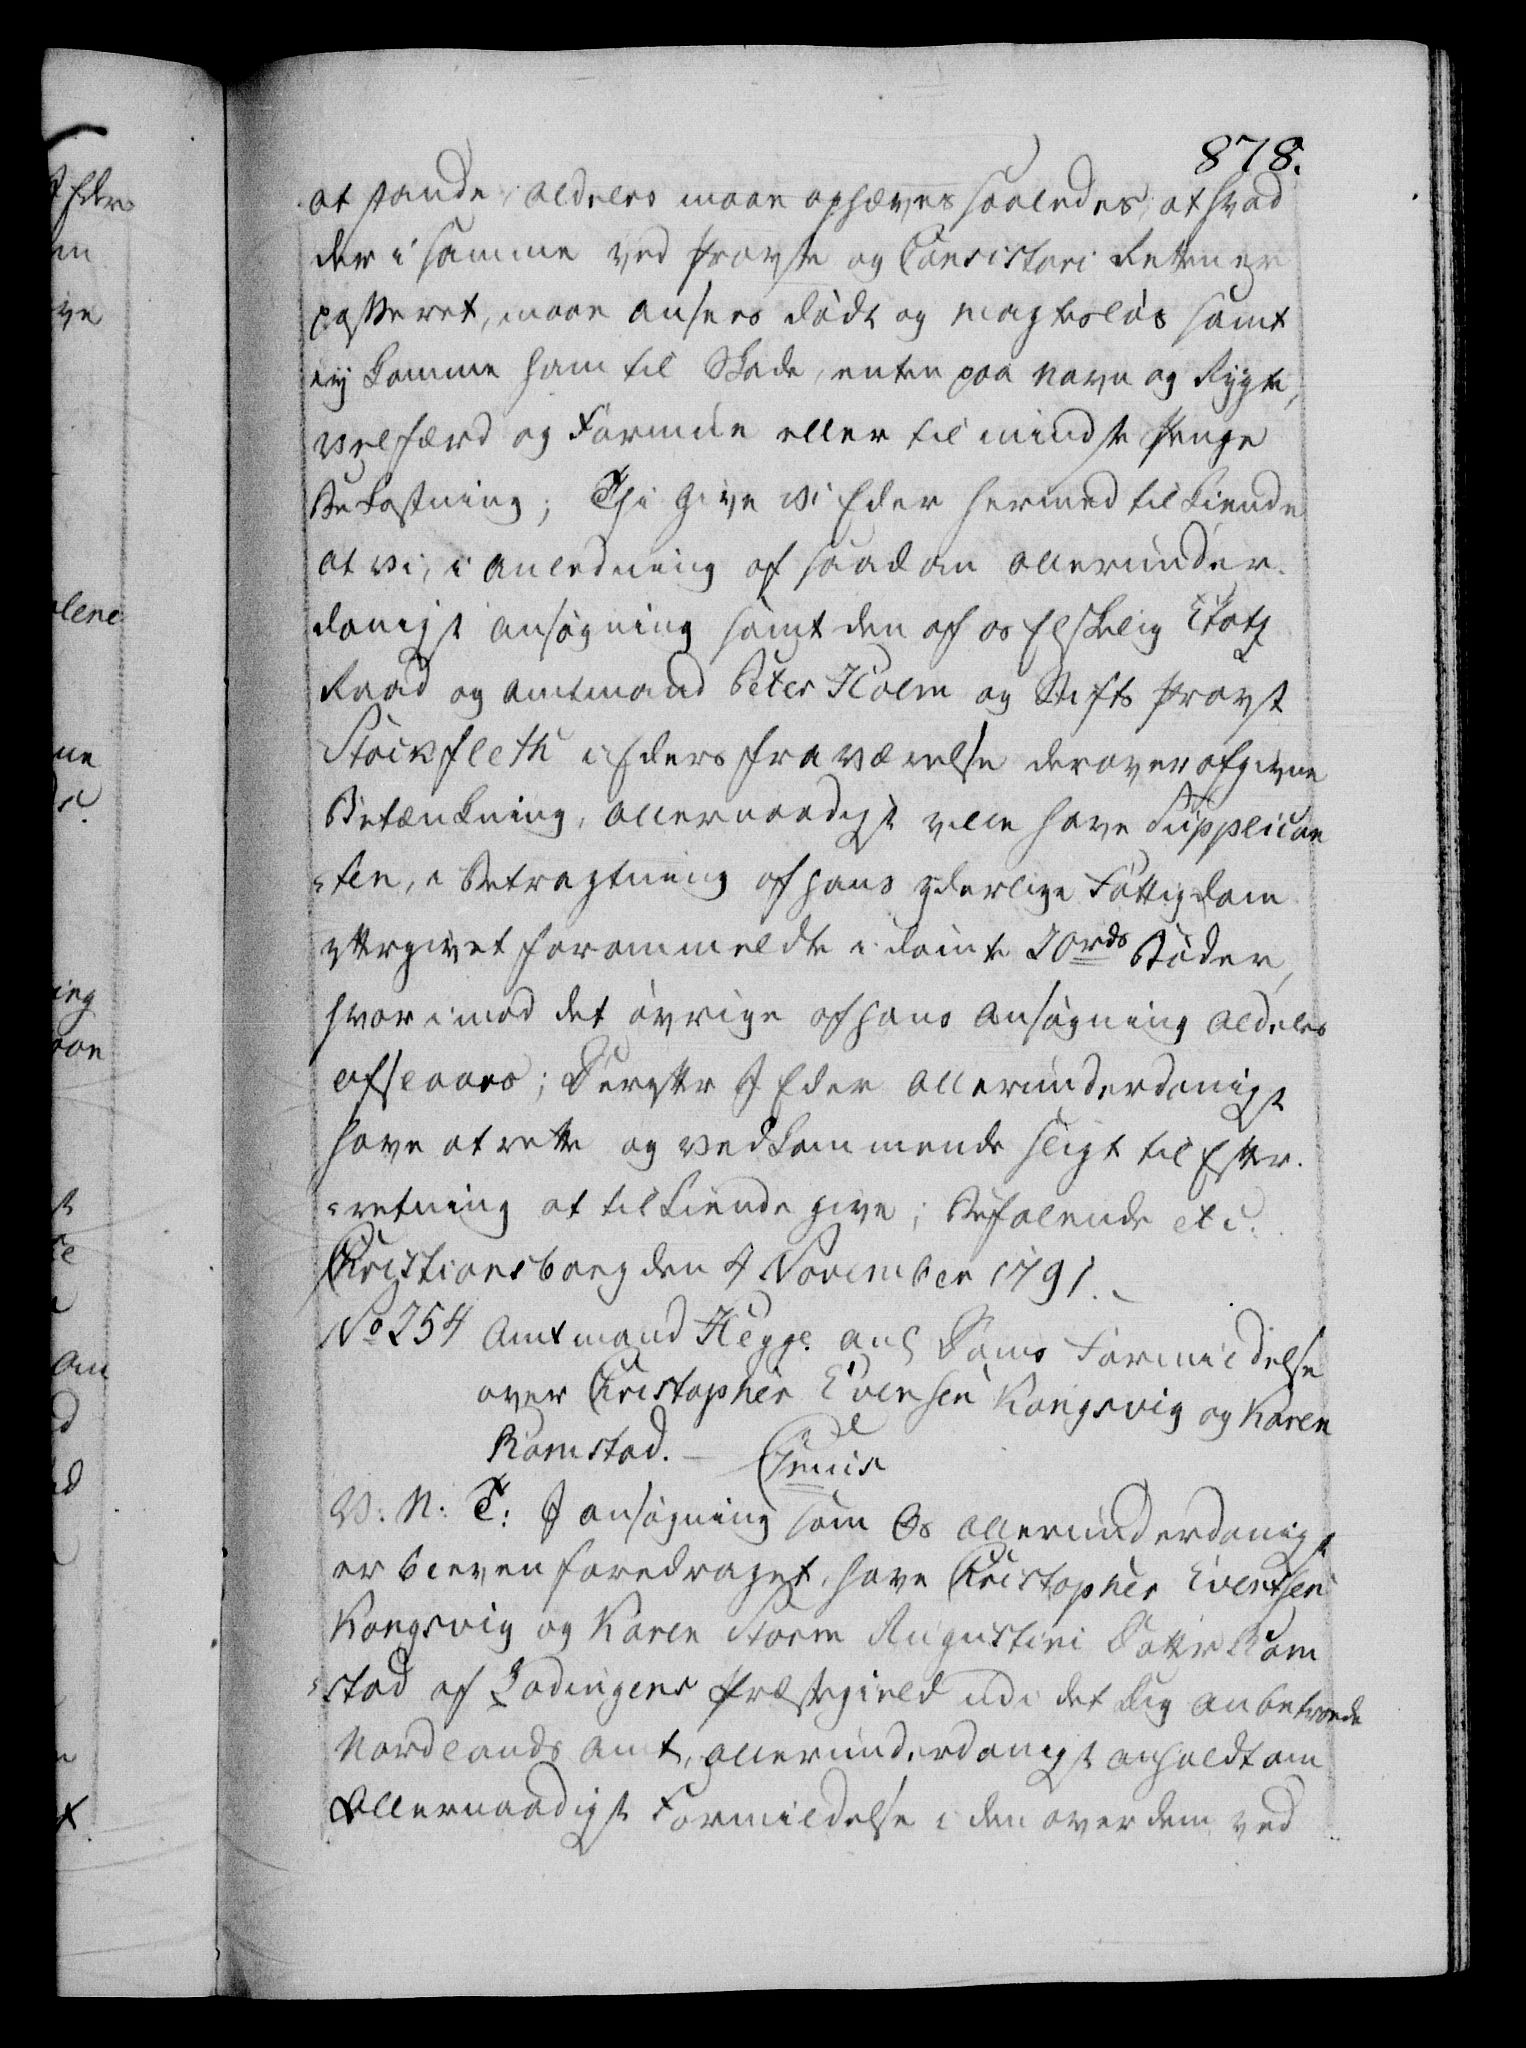 878.
at stande, aldeles maae ophæves saaledes, at hvad
der i samme ved Provste og Consistori Retten er
passeret, maae ansees dödt og magteslös samt
ej komme ham til Skade, enten paa Navn og Rygte,
Velfærd og Formue eller til mindste Penge
Bekostning; Thi give vi Eder hermed tilkiende
at vi, i Anledning af saadan allerunder-
danigst Ansøgning samt den af os Elskelig Etatz
Raad og Amtmand Peter Holm og Stifts Provst
Stockfleth i Eders fraværelse derover afgivne
Betænkning, allernaadigst ville have Supplican
=ten, i Betragtning af hans yderlige Fattigdom
eftergivet forommeldte idömte 20 rds Böder,
hvorimod det övrige af hans Ansøgning aldeles
afslaaes; Derefter I Eder allerunderdanigst
have at rette og vedkommende sligt til Efter-
=retning at tilkiende give; Befalende etc.
Christiansborg den 4 November 1791.
No 254 Amtmand Hegge. anl Doms Formildelse
over Christopher Evensen Kongsvig og Karen
Ramstad. —
V: N: T: I Ansøgning som Os allerunderdanigst
er bleven foredraget, have Christopher Eventsen
Kongsvig og Karen Storm Augustini Datter Ram
=stad af Lodingens Præstegield udi det Dig anbetroede
Nordlands Amt, allerunderdanigst anholdt om
Allernaadigst Formildelse i den over dem ved